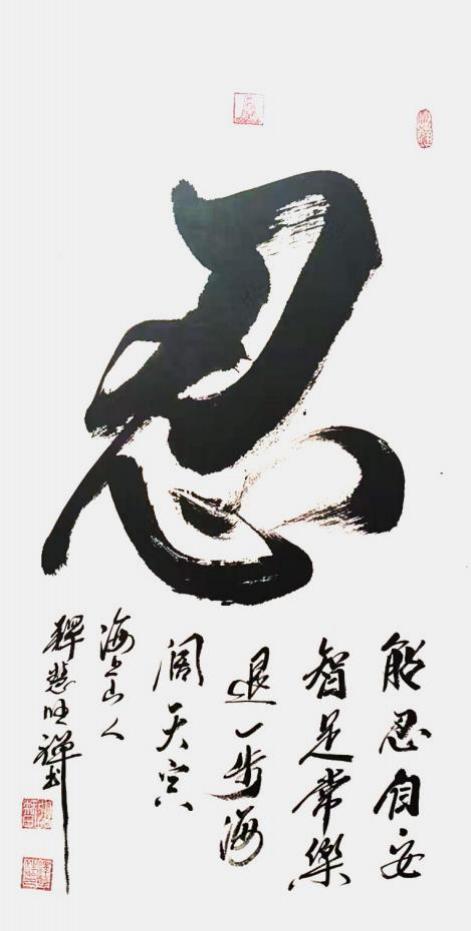 忍
能忍自安
智足常樂
退一步海
阔天宽
海上山人
釋慧旺禪书